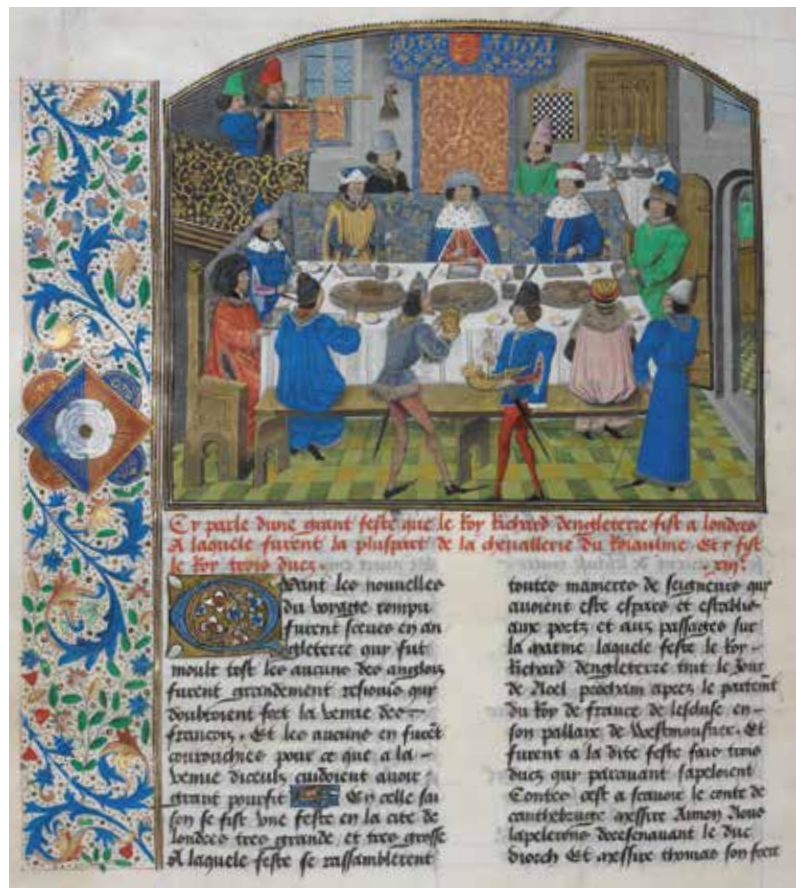 Cy parle dune grant feste que le Roy Richard dengleterre fist a londres
A laquelle furent la pluspart de la chevallerie du Roiaulme Et y fist
le Roy trois ducz
Quant les nouvelles
du voyage rompu
furent sceues en an
gleterre qui fut
moult tost les aucuns des anglois
furent grandement resiouis qui
doubtoient fort la venue des
francois. Et les aucuns en furet
courouchies pour ce que a la
venue diceulz cuidoient avoir
grant pourfit En celle sai
son se fist une feste en la cite de
londres tres grande et tres grosse
A laquelle feste se rassamblerent
toutes manieres de seigneurs qui
avoient este espars et establis
aux portz et aux passages sur
la marine laquelle feste le Roy
Richard dengleterre tint le Jour
de Noel prochain apres le partemt
du Roy de france de lescluse en
son pallaix de Westmonstier. Et
furent a la dite feste fais trois
ducz qui paravant sapeloient
Contes cest a scavoir le conte de
canthebruge messire Aimon Nous
lapelerons doresenavant le duc
diorch Et messire thomas son frere